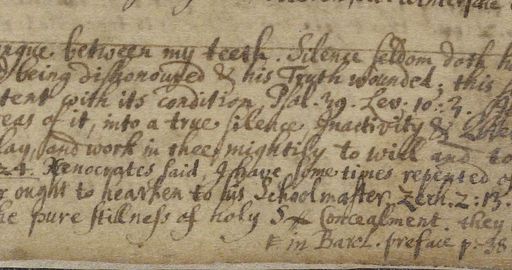 between my teeth. Silence seldom doth
being dishonoured & his Truth wounded; this
with its condition Psal. 39. Lev. 10. 3.
of it, into a true silence Inactivity &
and work in thee mightily to will and to
24. Xenocrates said, I have some times repented of
ought to hearken to his Schoolmaster. Zech. 2. 13.
pure stillness of holy Concealment. they
in Barcl. preface p. 38